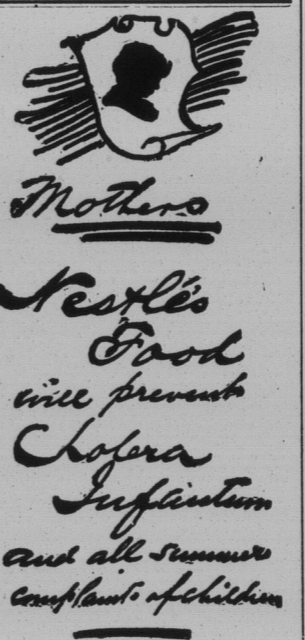 Mothers
Nestlé's
Food
will prevent
Cholera
Infantum
and all summer
complaints of children